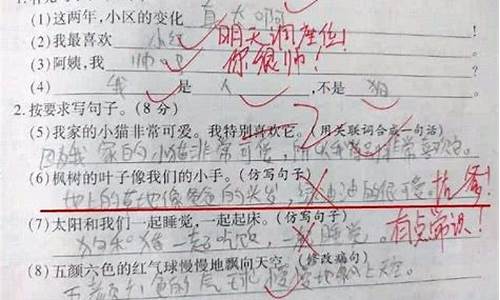 (1)这两年，小区的变化 真大啊
(2)我最喜欢 小红 明天调座位！
(3)阿姨，我 帅吧 你很帅！
(4) 我 是 人 ，不是 狗
2.按要求写句子。(8分)
(5)我家的小猫非常可爱。我特别喜欢它。(用关联词合成一句话)
因为我家的小猫非常可爱，所以我特别非常喜欢它。
(6)枫树的叶子像我们的小手。(仿写句子)
地上的草地像爸爸的头发，绿油油的很可爱。
(7)太阳和我们一起睡觉，一起起床。(仿写句子)
狗和猪一起吃饭，一起睡觉。 有点常识！
(8)五颜六色的红气球慢慢地飘向天空。(修改病句)
五颜六色的气球慢慢地飘上天空。